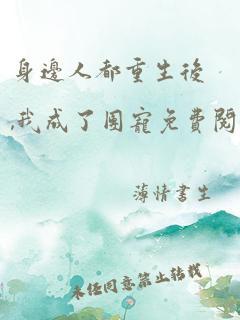 身邊人都重生後
,我成了團寵免費閱
薄情書生
未經同意禁止轉載